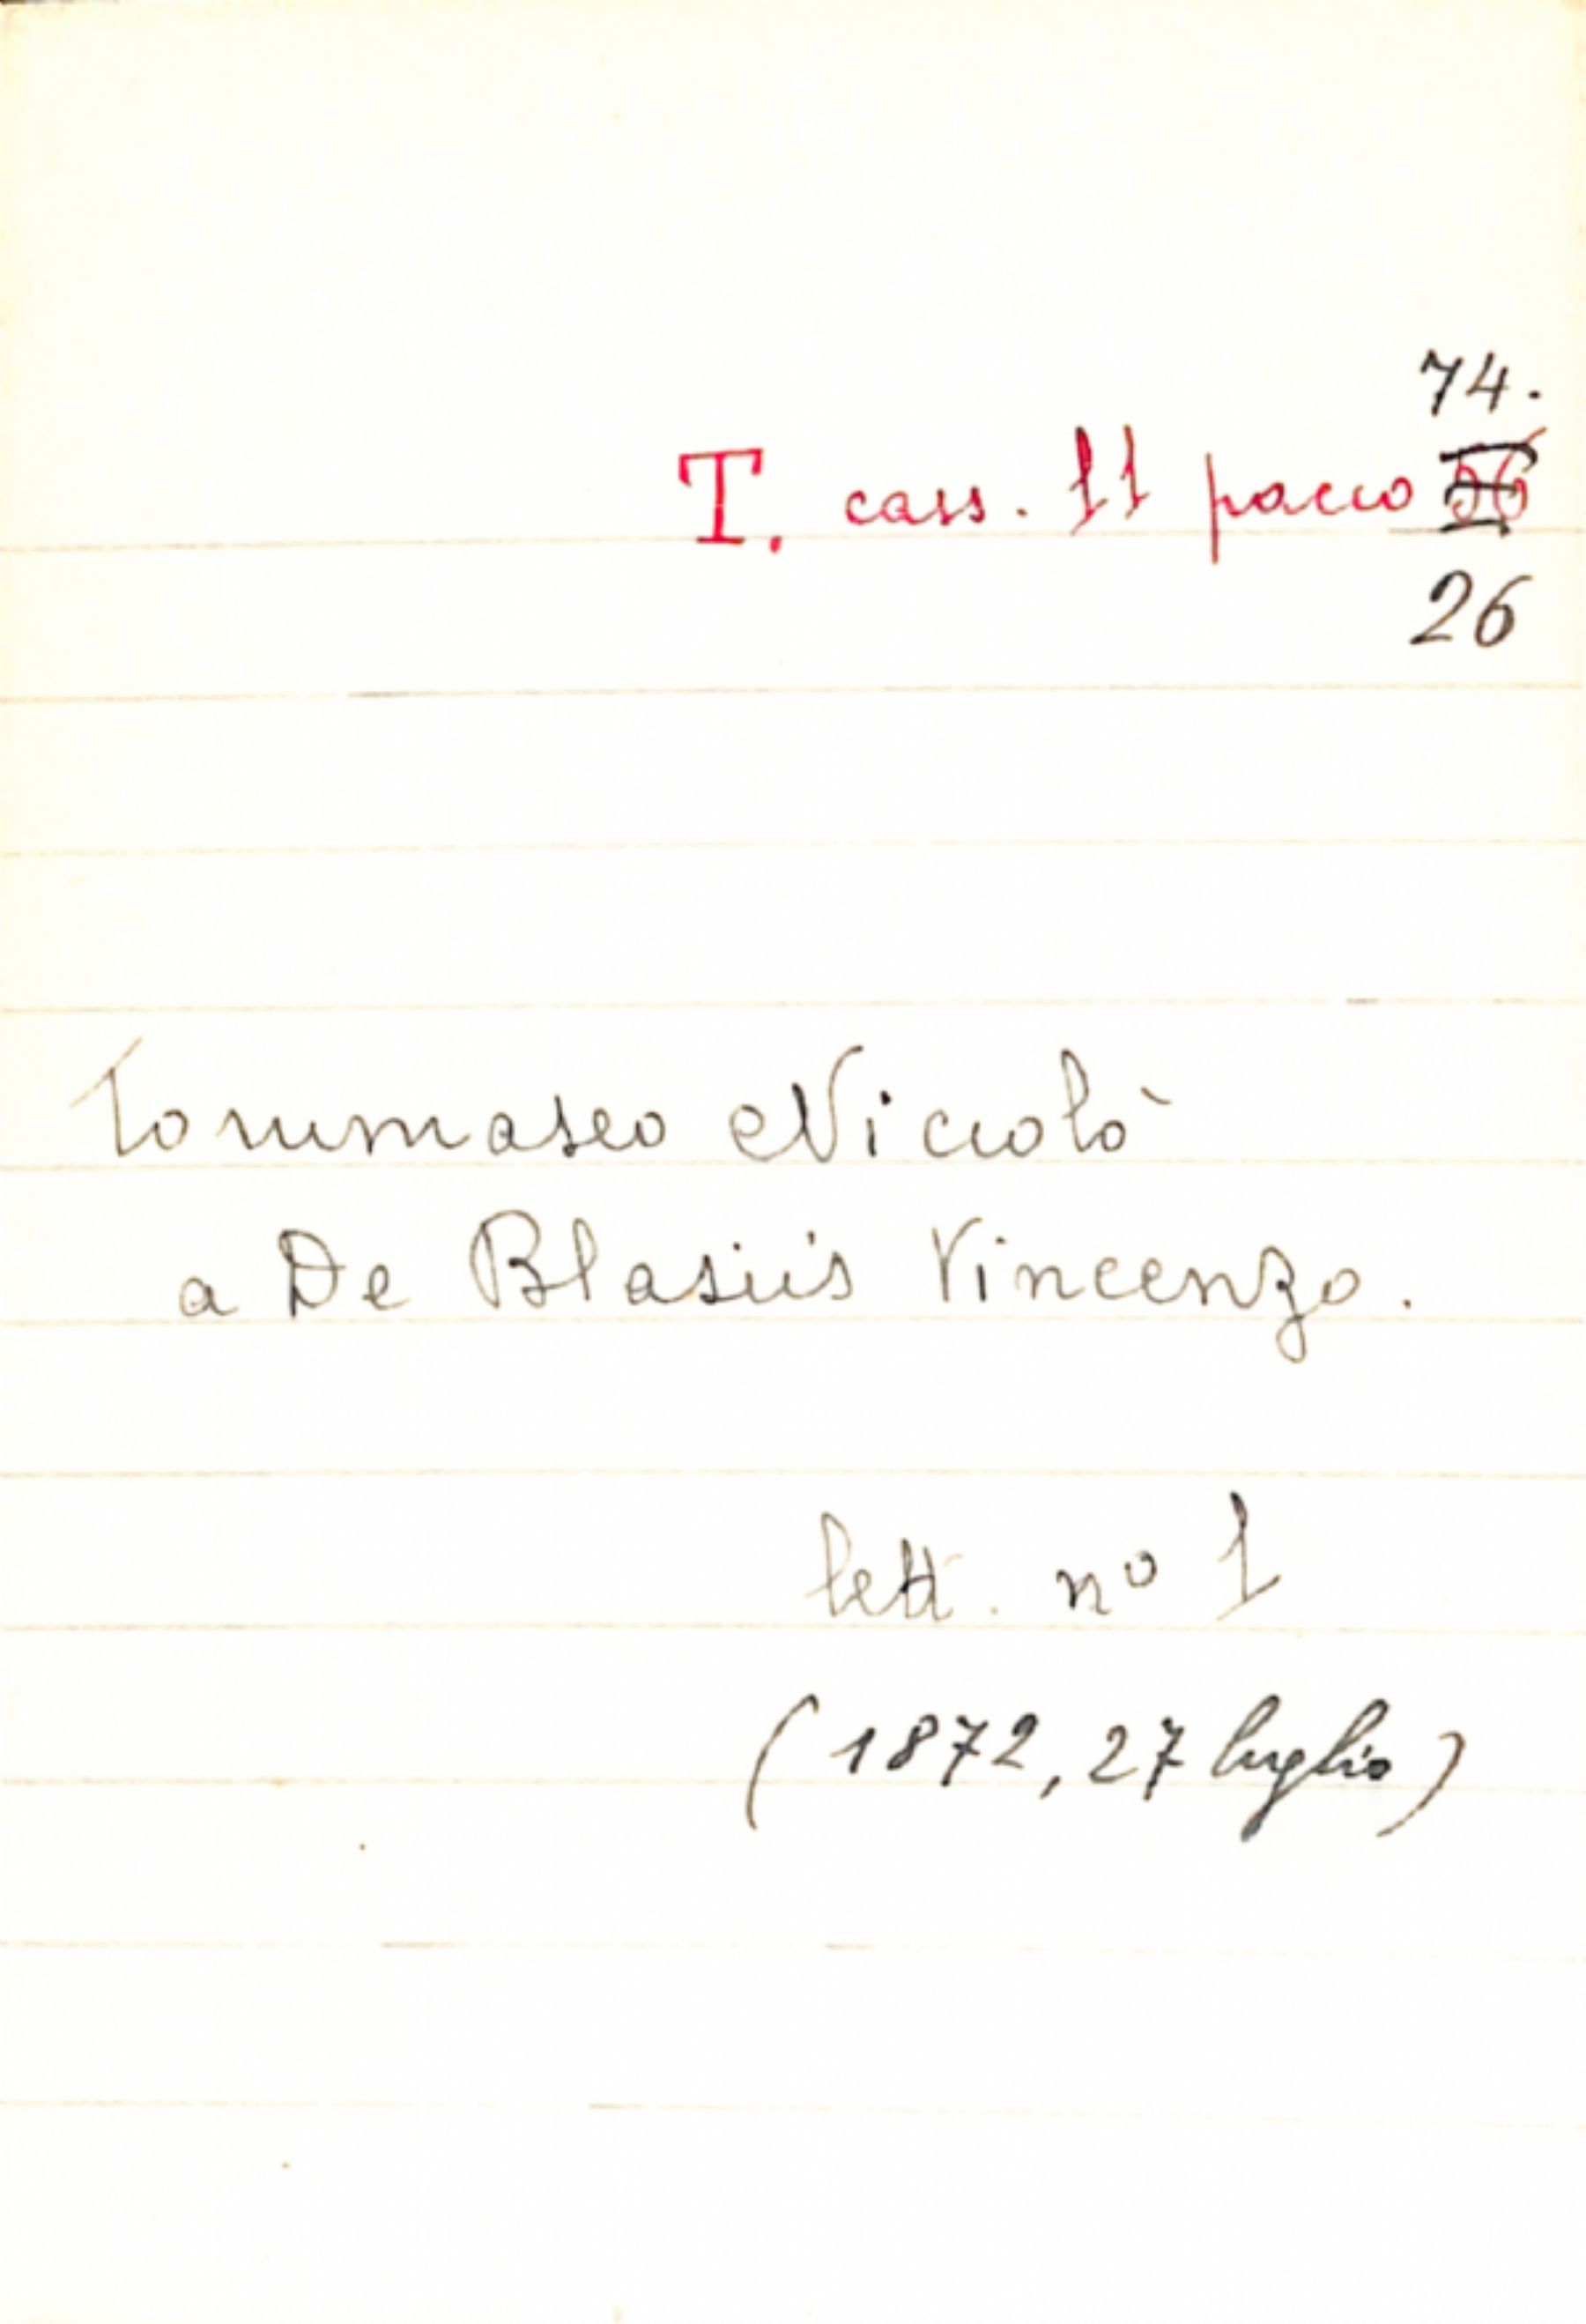 74.
T. cass. 11 pacco
26
Tommaseo Niccolò
a De Blasiis Vincenzo.
lett. nº 1
(1872, 27 luglio)